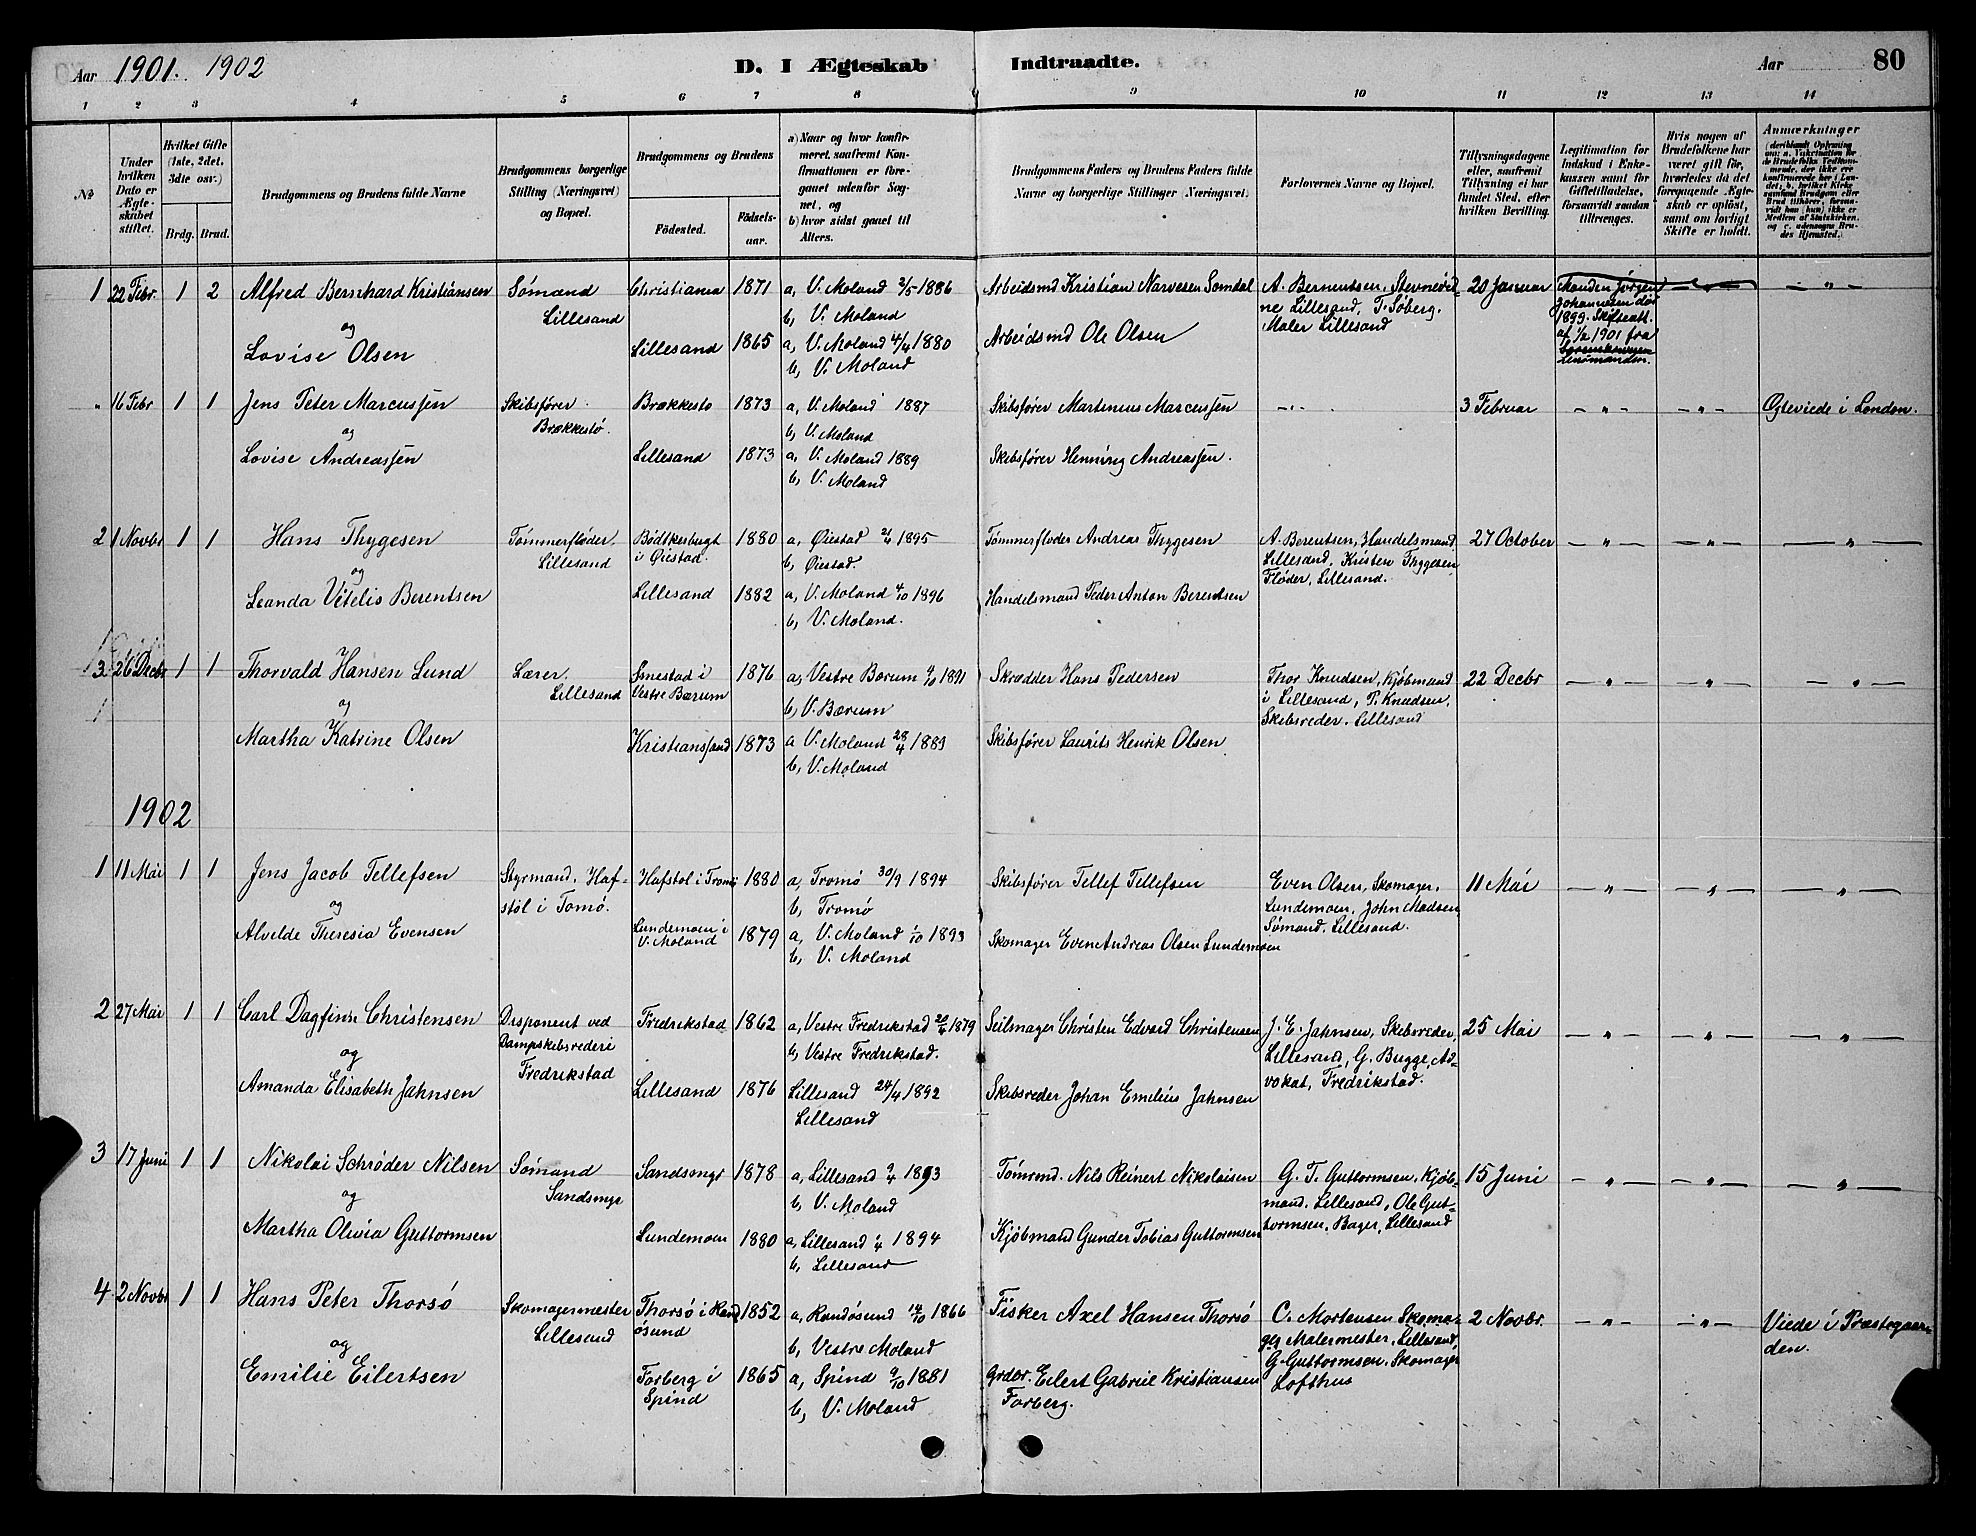 Aar 1901. 1902 D. I Ægteskab Indtraadte. Aar 80
1 2 3 4 5 6 7 8 9 10 11 12 13 14
No
Under hvilken Dato er Ægteskabet stiftet.
Hvilket Gifte (1ste, 2det. 3die osv.)
Brdg. Brud.
Brudgommens og Brudens fulde Navne
Brudgommens borgerlige Stilling (Næringsvei) og Bopæl.
Brudgommens og Brudens
Födested. Födselsaar.
a) Naar og hvor konfirmeret, saafremt Konfirmationen er foregaaet udenfor Sognet, og
b) hvor sidst gaaet til Alters.
Brudgommens Faders og Brudens Faders fulde Navne og borgerlige Stillinger (Næringsvei)
Forlovernes Navne og Bopæl.
Tillysningsdagene eller, saafremt Tillysning ei har fundet Sted, efter hvilken Bevilling.
Legitimation for Indskud i Enkekassen samt for Giftetilladelse, forsaavidt saadan tiltrænges.
Hvis nogen af Brudefolkene har været gift för, hvorledes da det foregaaende Ægteskab er oplöst, samt om lovligt Skifte er holdt.
Anmærkninger
1 22 Febr. 1 2 Alfred Bernhard Kristiansen
og
Lovise Olsen
Sømænd
Lillesand
Christiania 1871 a, V. Moland 2/5 1886
b, V. Moland
Lillesand 1865 a, V. Moland 4/4 1880
b, V. Moland
Arbeidsmd Kristian Narvesen Somdal
Arbeidsmd Ole Olsen
A. Berentsen, Stevnevid-
ne Lillesand, T. Söberg.
Maler Lillesand
20 Januar
Manden Jørgen
Johannesen död
1899. Skifteatt.
af 1/2 1901 fra
lensmanden.
„ 16 Febr 1 1 Jens Peter Marcussen
og
Lovise Andreassen
Skibsfører
Brækkestø.
Brækkestø 1873 a, V. Moland 1887
b, V. Moland
Lillesand 1873 a, V. Moland 1889
b, V. Moland
Skibsfører Martinius Marcussen
Skibsfører Henning Andreassen.
— „ —
3 Februar — „ — — „ — Ægteviede i London.
2 1 Novbr 1 1 Hans Thygesen
og
Leanda Vitelis Berentsen
Tømmerfløder.
Lillesand
Bödtkerbergt
i Øiestad.
1880 a, Øiestad 1895
b, Øiestad.
Lillesand 1882 a, V. Moland 4/10 1896
b, V. Moland.
Tømmerfløder Andreas Thygesen
Handelsmand Peder Anton Berentsen
A. Berentsen, Handelsmand
Lillesand, Kristen Thygesen
Fløder, Lillesand.
27 October — „ — — „ — — „ —
3 26 Decbr 1 1 Thorvald Hansen Lund
og
Martha Katrine Olsen
Lærer.
Lillesand
Smestad i
Vestre Bærum
1876 a, Vestre Bærum 4/10 1891
b, V. Bærum
Kristianssand 1873 a V. Moland 28/4 1889
b, V. Moland
Skrædder Hans Pedersen
Skibsfører Laurits Henrik Olsen
Thor Knudsen, Kjøbmand
i Lillesand, P. Knudsen,
Skibsreder. Lillesand
22 Decbr — „ — — „ — — „ —
1902
1 11 Mai 1 1 Jens Jacob Tellefsen
og
Alvelde Theresia Evensen
Styrmand. Haf-
stöl i Tomö.
Hafstol i Tromö 1880 a, Tromö 30/9 1894
b, Tromö
Lundemoen i
V. Moland
1879 a, V. Moland 1/10 1893
b, V. Moland
Skibsfører Tellef Tellefsen
Skomager Even Andreas Olsen Lundemoen
Even Olsen, Skomager.
Lundemoen, John Madsen
Sømand. Lillesand.
11 Mai — „ — — „ — — „ —
2 27 Mai 1 1 Carl Dagfinn Christensen
og
Amanda Elisabeth Jahnsen
Disponent ved
Dampskibsrederi
Fredrikstad
Fredrikstad 1862 a, Vestre Fredrikstad 20/4 1879
b, Vestre Fredrikstad.
Lillesand 1876 Lillesand 24/4 1892
Lillesand
Seilmager Christen Edvard Christensen
Skibsreder Johan Emilius Jahnsen
J. E. Jahnsen, Skibsreder,
Lillesand, G. Bugge, Ad-
vokat, Fredrikstad.
25 Mai — „ — — „ — — „ —
3 17 Juni 1 1 Nikolai Schrøder Nilsen
og
Martha Olivia Guttormsen
Sømand
Sandsmyr
Sandsmyr 1878 a, Lillesand 9/4 1893
b, V. Moland
Lundemoen 1880 a, Lillesand 1/4 1894
b, Lillesand
Tömrmd. Nils Reinert Nikolaisen
Kjøbmand Gunder Tobias Guttormsen
G. T. Guttormsen. Kjöb-
mand. Lillesand, Ole Gut-
tormsen, Bager, Lillesand
15 Juni — „ — — „ — — „ —
4 2 Novbr 1 1 Hans Peter Thorsö
og
Emilie Eilertsen
Skomagermester
Lillesand
Thorsö i Rand
øsund
1852 a, Randøsund 14/10 1866
b, Vestre Moland
Forberg i
Spind
1865 a, Spind 9/10 1881
b, V. Moland
Fisker Axel Hansen Thorsö
Grdbr. Eilert Gabriel Kristiansen
Forberg.
C. Mortensen Skoma-
ger Malermester, Lillesand,
G. Guttormsen. Skomager
Lofthus
2 Novbr. — „ — — „ — Viede i Præstegaar-
den.